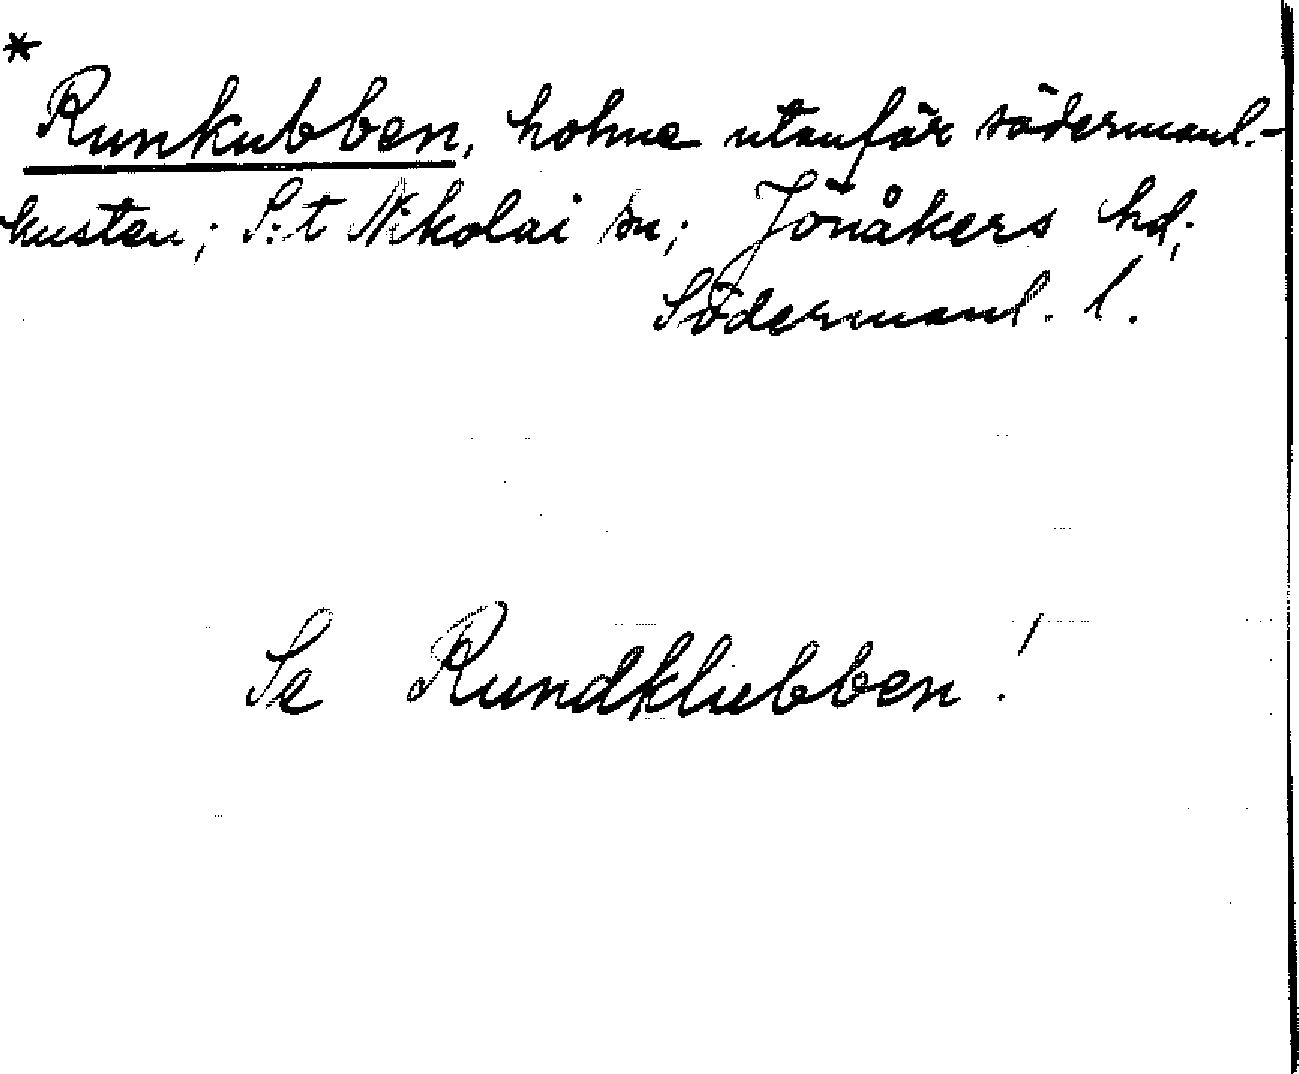 *
Runkubben, holme utanför södermanl.-
kusten; S:t Nikolai sn; Jönåkers hd;
Södermanl. l.
Se Rundklubben!